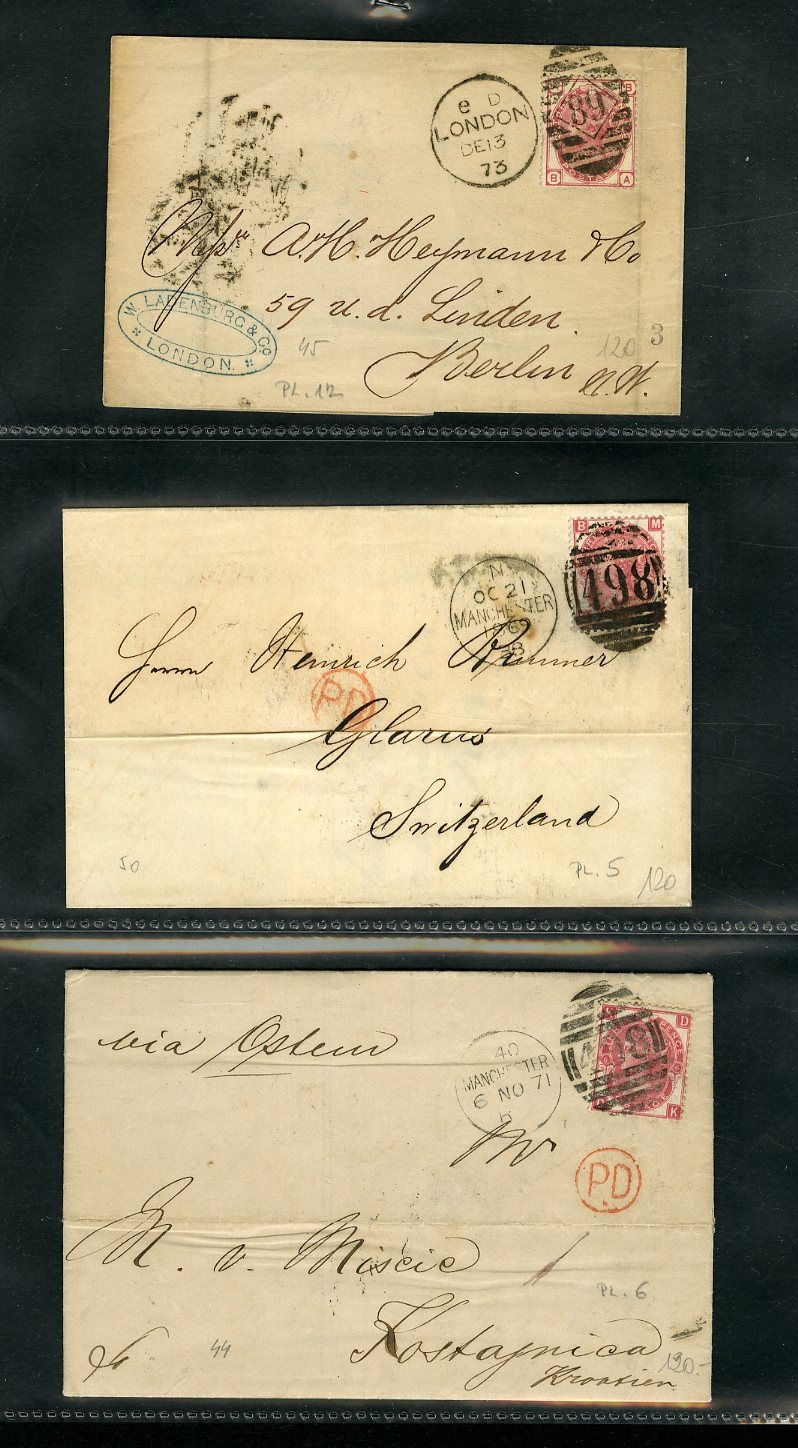 e D
LONDON
DE 13
73
89
B
B A
Messrs A. H. Heymann & Co
59 u. d. Linden
Berlin N. W.
W. LADENBURG & Co
LONDON.
45
120
3
PL. 12
B M
498
N
OC 21
MANCHESTER
Herrn Heinrich Brunner
PD
Glarus
Switzerland
50
PL. 5
120
via Ostern
40
MANCHESTER
6 NO 71
498
D
K
Mr
PD
N. v. Miscic
PL. 6
Kostajnica
Kroatien
44
120.-